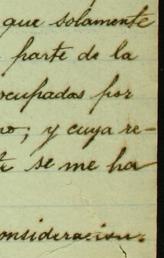 que solamente
parte de la
ocupadas por
no; y cuya re-
se me ha
onsideracion.